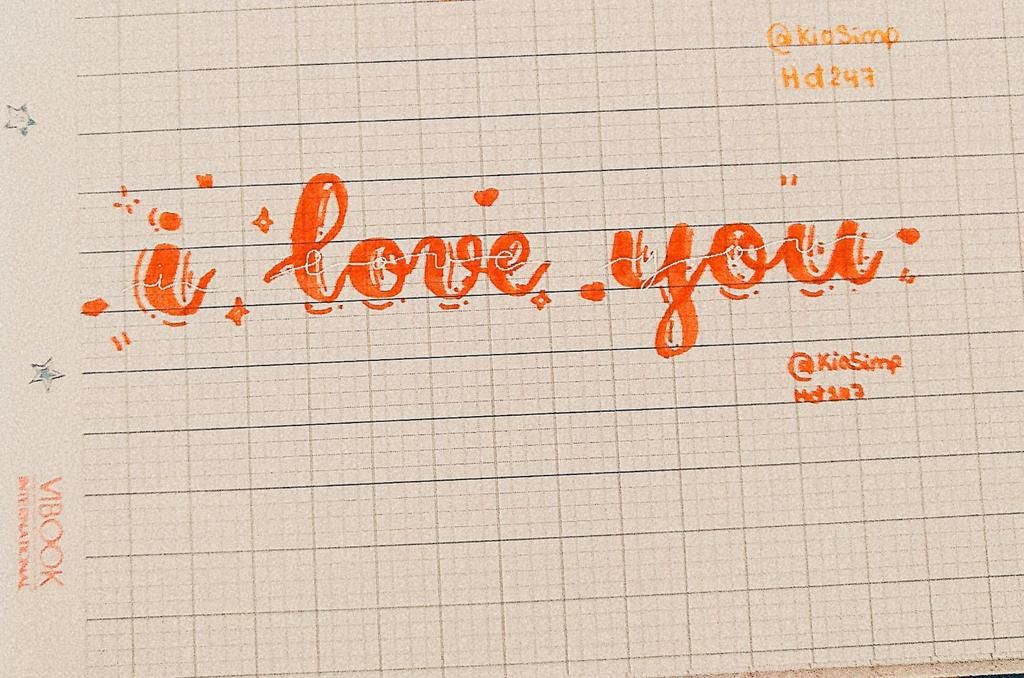 @KiaSimp
Hd247
i love you
@KiaSimp
Hd247
VIBOOK
INTERNATIONAL